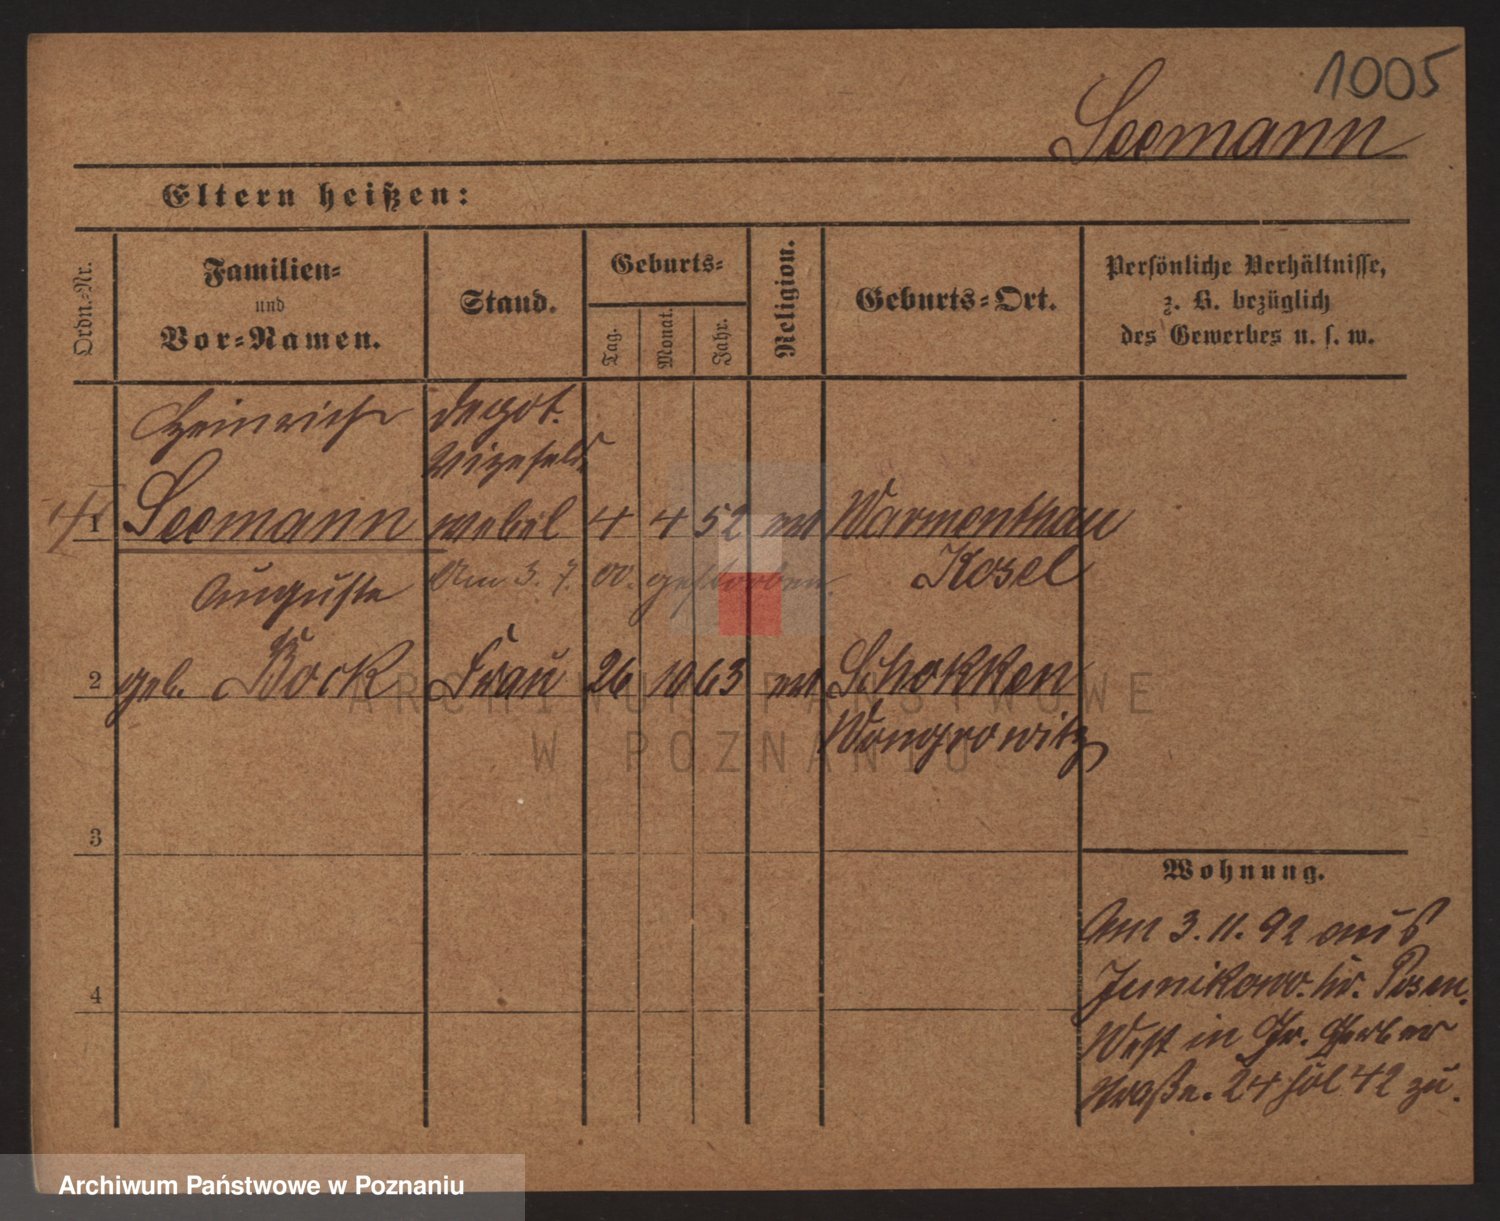 1005
Seemann
Eltern heißen:
Ordn.-Nr.
Familien-
und
Vor-Namen.
Stand.
Geburts-
Tag.
Monat.
Jahr.
Religion.
Geburts-Ort.
Persönliche Verhältnisse,
z. B. bezüglich
des Gewerbes u. s. w.
Heinrich
depot.
Vizefeld
1 Seemann webel 4 4 52 ev Warmenthau
Kosel
Auguste Am 3. 7. 00. gestorben.
2 geb. Bock Frau 26 10 63 ev Schokken
Wongrowitz
3
4
Wohnung.
Am 3. 11. 92 aus
Junikowo. kr. Posen.
West in Gr. Gerber
straße. 24 föl 42 zu.
ARCHIWUM PAŃSTWOWE
W POZNANIU
Archiwum Państwowe w Poznaniu